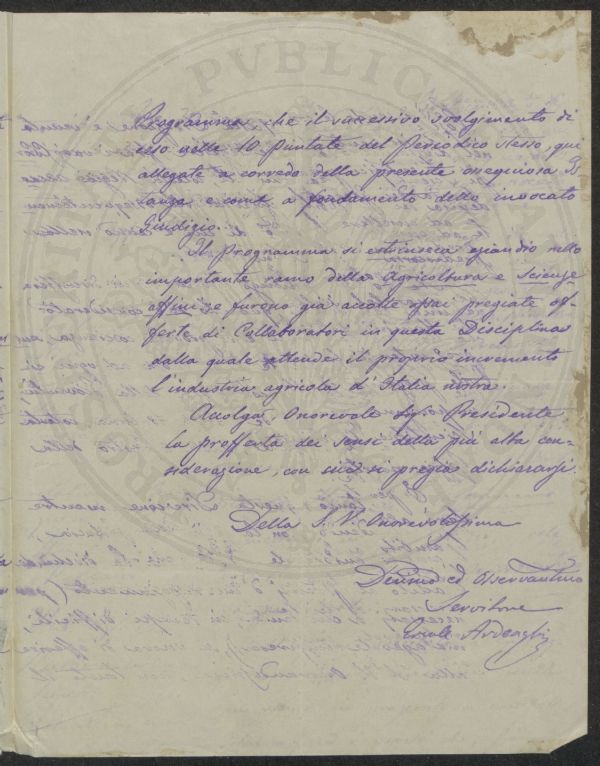 Programma, che il successivo svolgimento di
esso nelle 10 Puntate del Periodico stesso, qui
allegate a corredo della presente ossequiosa I-
stanza e come a fondamento dello invocato
Giudizio.
Il Programma si estinseca eziandio nello
importante ramo della Agricoltura e Scienze
affini; e furono già accolte assai pregiate of-
ferte di Collaboratori in questa Disciplina
dalla quale attende il proprio incremento
l'industria agricola d'Italia nostra.
Accolga Onorevole Sig. Presidente
la profferta dei sensi della più alta con-
siderazione, con cui si pregia dichiararsi
Della S. V. Onorevolissima
Devmo ed Osservantmo
Servitore
Ercole Ardenghi